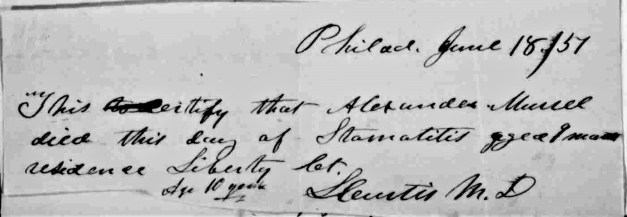 Philad. June 18/51
This certify that Alexander
died this day of Stomatitis aged 9
residence Liberty Ct.
Age 10 years
M.D